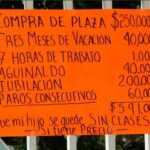 COMPRA DE PLAZA $250,000
TRES MESES DE VACACION 40,000
7 HORAS DE TRABAJO 1,00
AGUINALDO 40,000
JUBILACION 200,000
PAROS CONSECUTIVOS 60,0
$591,00
Que mi hijo se quede SIN CLASES
Si tiene PRECIO